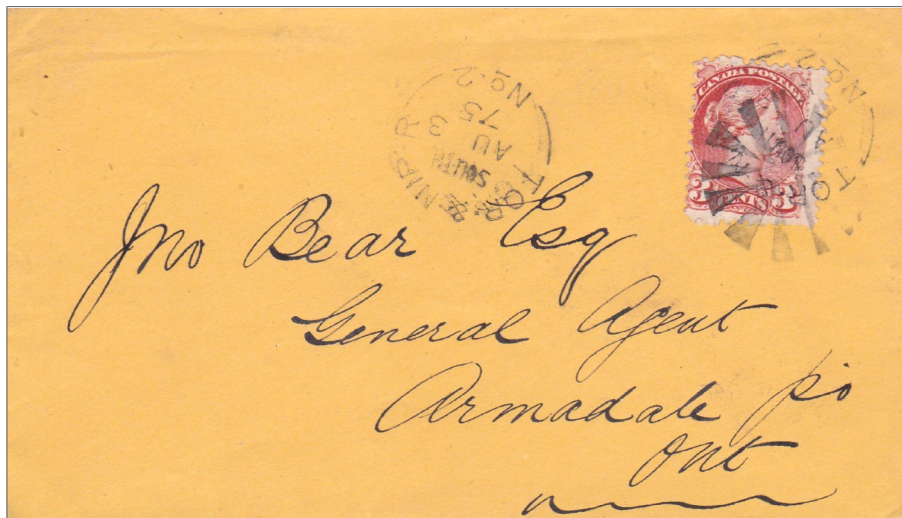 TOR. & NIP. R
SOUTH
AU 3
75
No. 2
CANADA POSTAGE
3 CENTS 3
TOR
SOU
AU
No. 2
Jno Bear Esq
General Agent
Armadale P.O
Ont